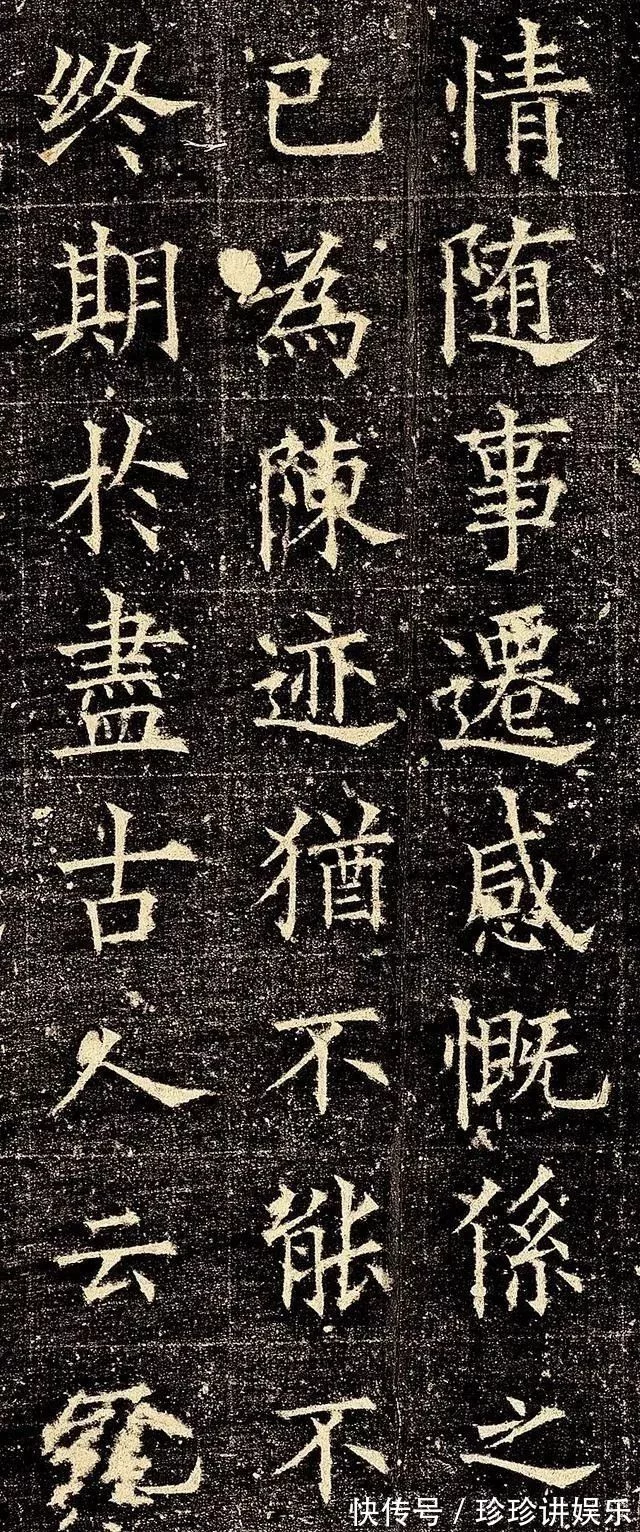 情随事遷感慨係之
已為陳迹猶不能不
终期於盡古人云
快传号 / 珍珍讲娱乐